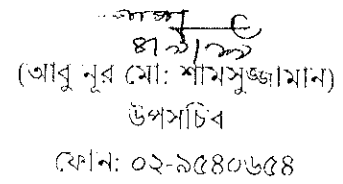 (আবু নূর মো: শামসুজ্জামান)
উপসচিব
ফোন: ০২-৯৫৪০৬৫৪